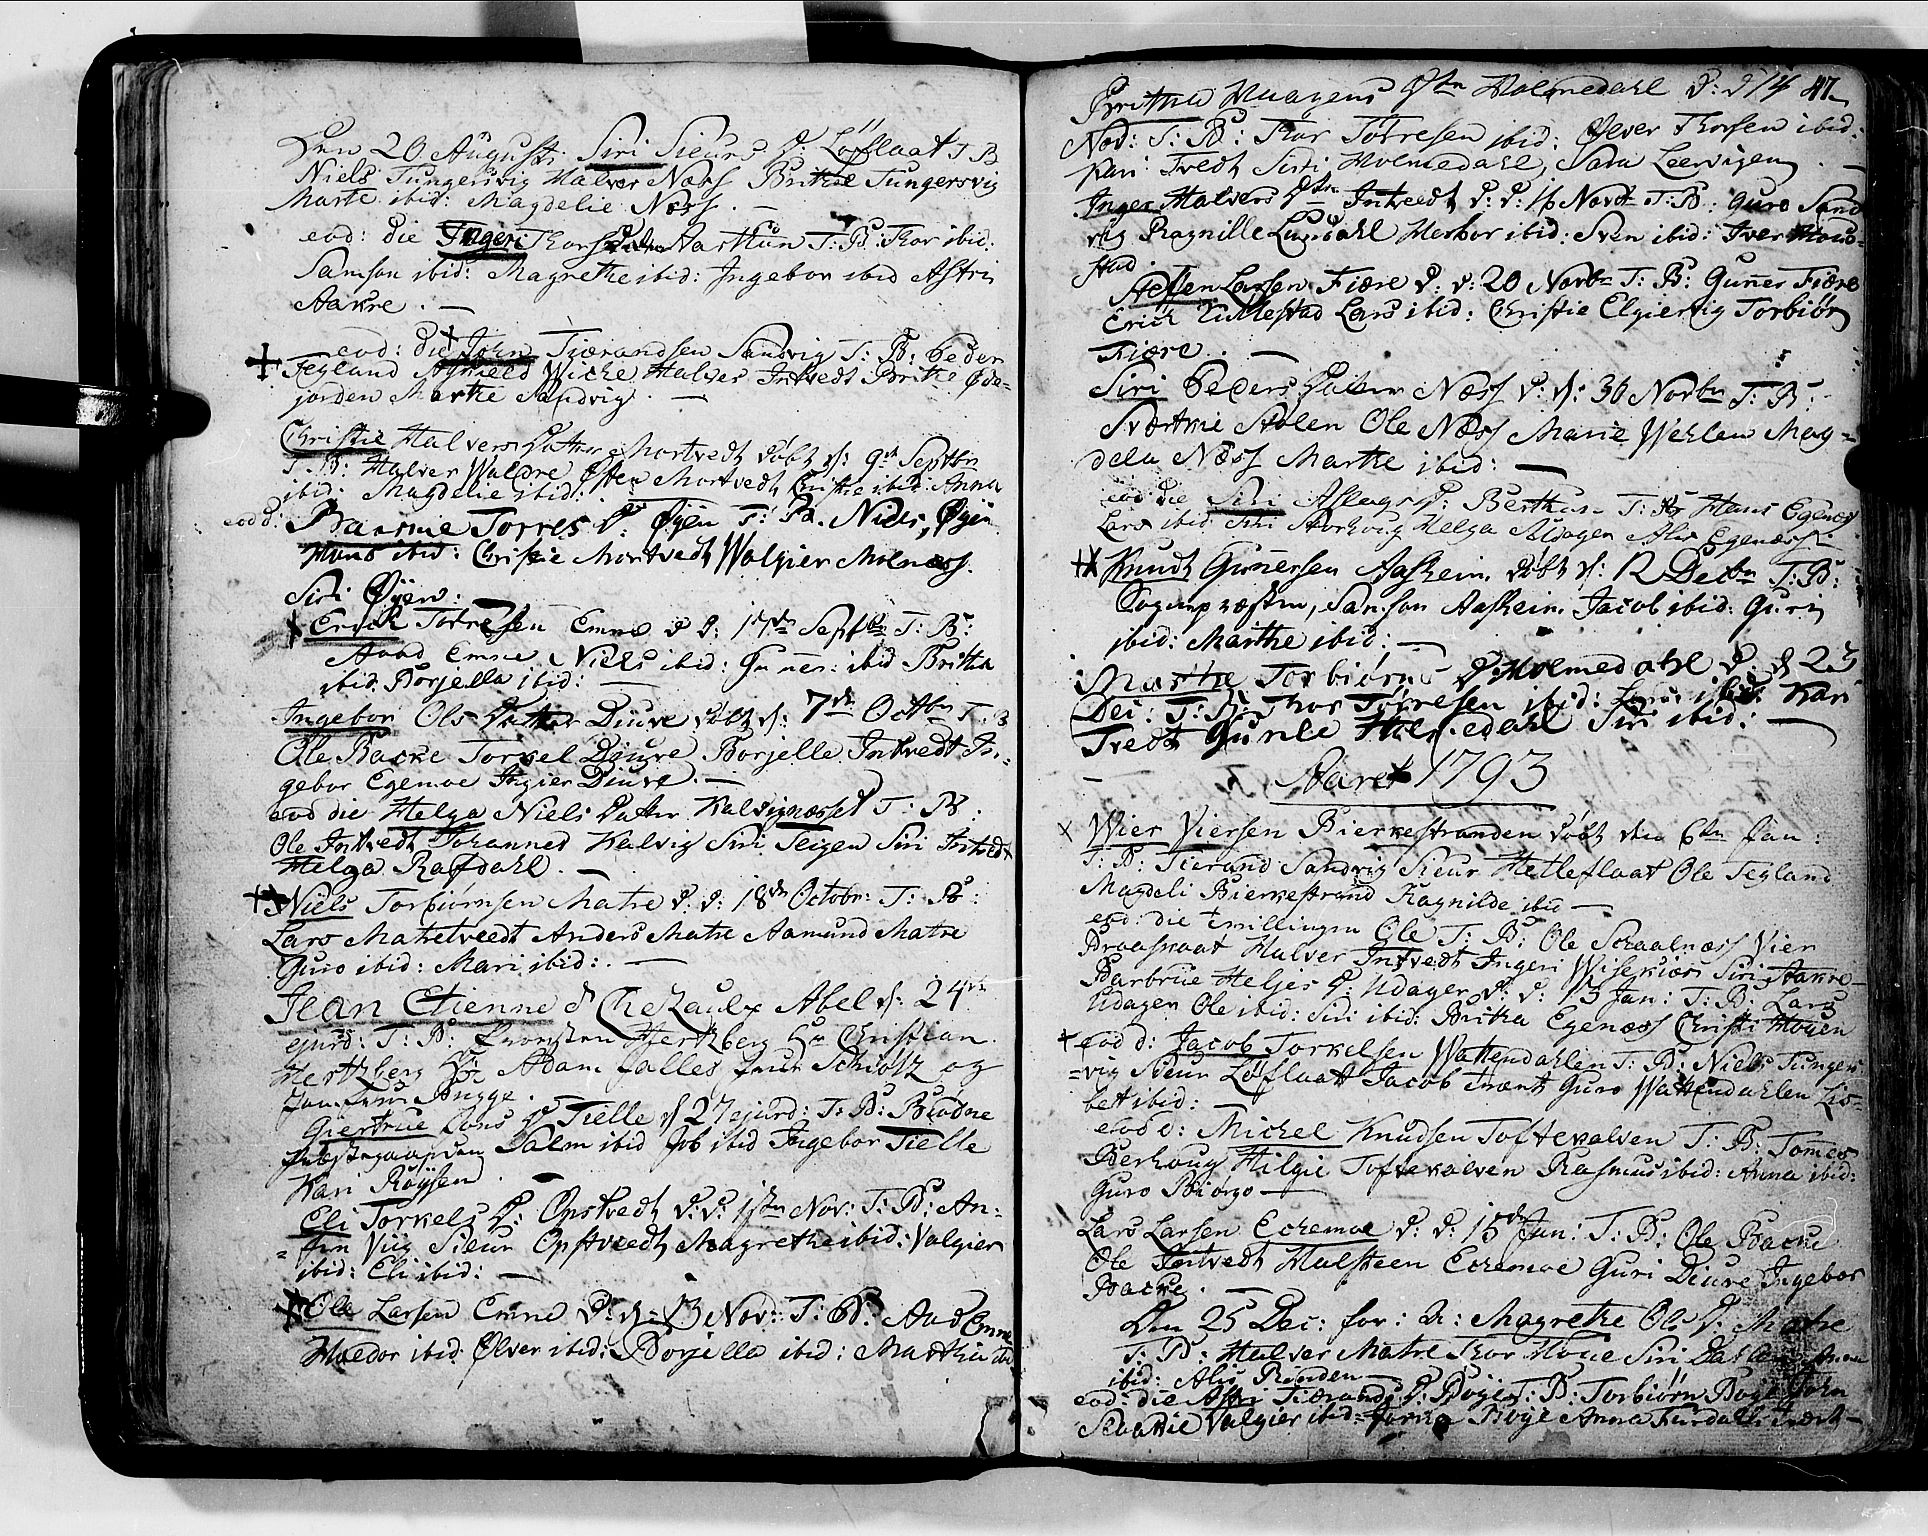 Den 20 Augusti Siri Siurs D: Löflaat T: B
Niels Tungersvig Halvor Næss Brithe Tungersvig
Marte ibid: Magdelie Næss. —
eod: die Ingeri Thors Aarthun T: B: Thor ibid:
Samson ibid: Magrethe ibid: Ingebor ibid Astri
Aakre. —
eod: die John Tiærandsen Sandvig T: B: Peder
Tegland Wiche Halvor Intvedt Brithe Øde-
jorden Marthe Sandvig. —
Christie Halvers Datter Mortvedt döbt d: 9de Septbr
T: B: Halver Waløre Østen Mortvedt Christie ibid: Anna
ibid: Magdelie ibid:
eod d: Torres D: Øyen T: B. Niels Øyen
Hans ibid: Christie Mortvedt Walgier Molnæss.
Siri Øyen:
Erick Torresen Emne d: d: 17de Septbr T: B:
Avad Emne Niels ibid: Gunner: ibid Britha
ibid. Borjella ibid: —
Ingebor Ols Datter Diuve döbt d: 7de Octbr T: B
Ole Backe Torkel Diuve Borjelle Intvedt In-
gebor Egemoe Ingier Diuve. —
eod die Helga Niels Datter Kalvignesset T: B:
Ole Intvedt Johannes Kalvig Siri Teigen Siri Intvedt
Helga Rafdahl. —
Niels Torbiørnsen Matre d: d: 18de Octobr: T: B:
Lars Matretvedt Anders Matre Aamund Matre
Guro ibid: Mari ibid: —
Jean Etienne d Abel d: 24de
ejusd: T: B: Provsten Hertzberg Hr Christian
Hertzberg Hr Adam Falles frue Schiøtz og
Jomfrue Bugge.
Giertrue Lars D: Tielle d 27 ejusd: T: B:
Præstegaarden Salm ibid Job ibid Ingebor Tielle
Kari Röysen.
Eli Torkels D: Opstvedt d: d: 1ste Nov: T: B: An-
-fin Viig Siur Opstvedt Magrethe ibid: Valgier
ibid: Eli ibid: —
Ole Larsen Emne d: d: 13 Nov: T: B: Avad Emne
Haldor ibid Ølver ibid: Borjella ibid: Martha ibid
Britha Maagens Dtr Holmedahl d: d 14 47
Nov: T: B: Thor Törresen ibid: Ølver Thorsen ibid:
Kari Tvedt Siri Holmedahl, Sara Leervigen. —
Inger Halvers Dtr Intvedt d: d: 16 Novbr T: B: Guro Sand
vig Ragnille Lundahl Herbor ibid: Sven ibid: Iver
stad.
Steffen Larsen Fiære d: d: 20 Novbr T: B: Gunner Fiære
Erich Tullestad Lars ibid: Christie Elgiersvig Torbiør
Fiære. —
Siri Peders Datter Næss d: d: 30 Novbr T: B:
Sværkie Stolen Ole Næss Marie Wehlen Mag-
dela Næss Marthe ibid: —
eod die Siri Aslags D: Berthus T: B: Hans Egenæss
Lars ibid Siri Helga Alis Egenæss
Knudt Gunnersen Aasheim döbt d: 12 Decbr T: B:
Sognepræsten, Samson Aasheim Jacob ibid: Guri
ibid: Marthe ibid: —
Marthe Torbiørns D: Holmedahl d: d 23
Dec: T: B: Thor Törresen ibid: Lars ibid: Kari
Tvedt Gunle Holmedahl Siri ibid: —
Aaret 1793
Wier Viersen Bierkestranden döbt den 6te Jan:
T: B: Tierand Sandvig Sieur Hetleflaat Ole Tegland
Magdeli Bierkestrand Ragnilde ibid —
eod: die Tvillingen Ole T: B: Ole Schaalnæss Vier
Braaskaat Halver Intvedt Ingeri Siri Aakre
Barbrue Heljes D: Udager d: d: 13 Jan: T: B: Lars
Udagen Ole ibid: Siri ibid: Britha Egenæss Christi Høyen
eod d: Jacob Torkelsen Wattendahlen T: B: Niels Tungers
-vig Siur Löflaat Jacob Guro Wattendahlen Lis-
bet ibid:
eod d: Michel Knudsen Toftekalven T: B: Tomes
Berhoug Hilgie Toftekalven Rasmus ibid: Anna ibid:
Guro Biørgo —
Lars Larsen Eckemoe d: d: 15de Jan: T: B: Ole Backe
Ole Intvedt Halsteen Eckemoe Guri Diuve Ingebor
Backe. —
Den 25 Dec: for: A: Magrethe Ols D: Matre
T: B: Halver Matre Thor Houe Siri Dahlen Anna
ibid: Alis Rinden —
eod: die Astri Tiærands D: Böye T: B: Torbiørn Böye John
Skaatie Valgier ibid: Böye Anna